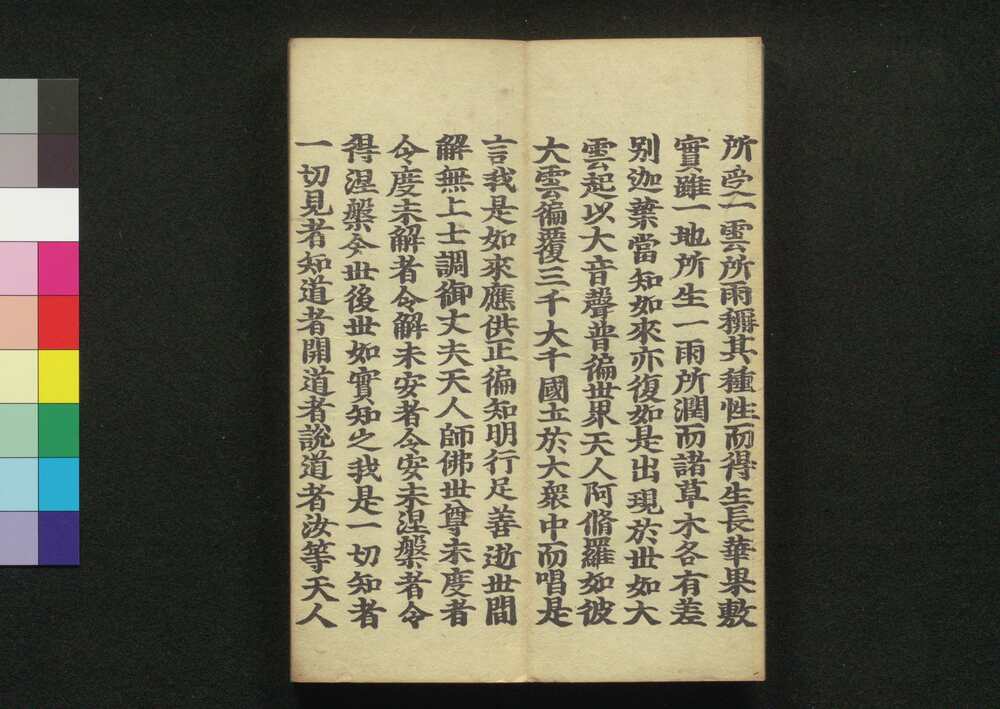 所受一雲所雨稱其種性而得生長華果敷
實雖一地所生一雨所潤而諸草木各有差
別迦葉當知如來亦復如是出現於世如大
雲起以大音聲普徧世界天人阿脩羅如彼
大雲徧覆三千大千國土於大衆中而唱是
言我是如來應供正徧知明行足善逝世間
解無上士調御丈夫天人師佛世尊未度者
令度未解者令解未安者令安未涅槃者令
得涅槃今世後世如實知之我是一切知者
一切見者知道者開道者說道者汝等天人